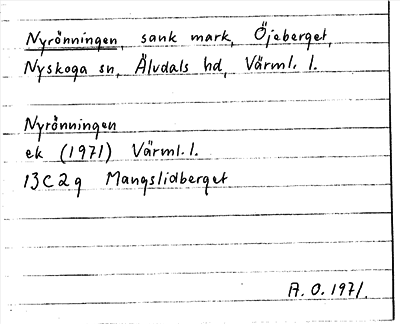 Nyrönningen, sank mark, Öjeberget,
Nyskoga sn, Älvdals hd, Värml. l.
Nyrönningen
ek (1971) Värml. l.
13C2g Mangslidberget
A.O. 1971.